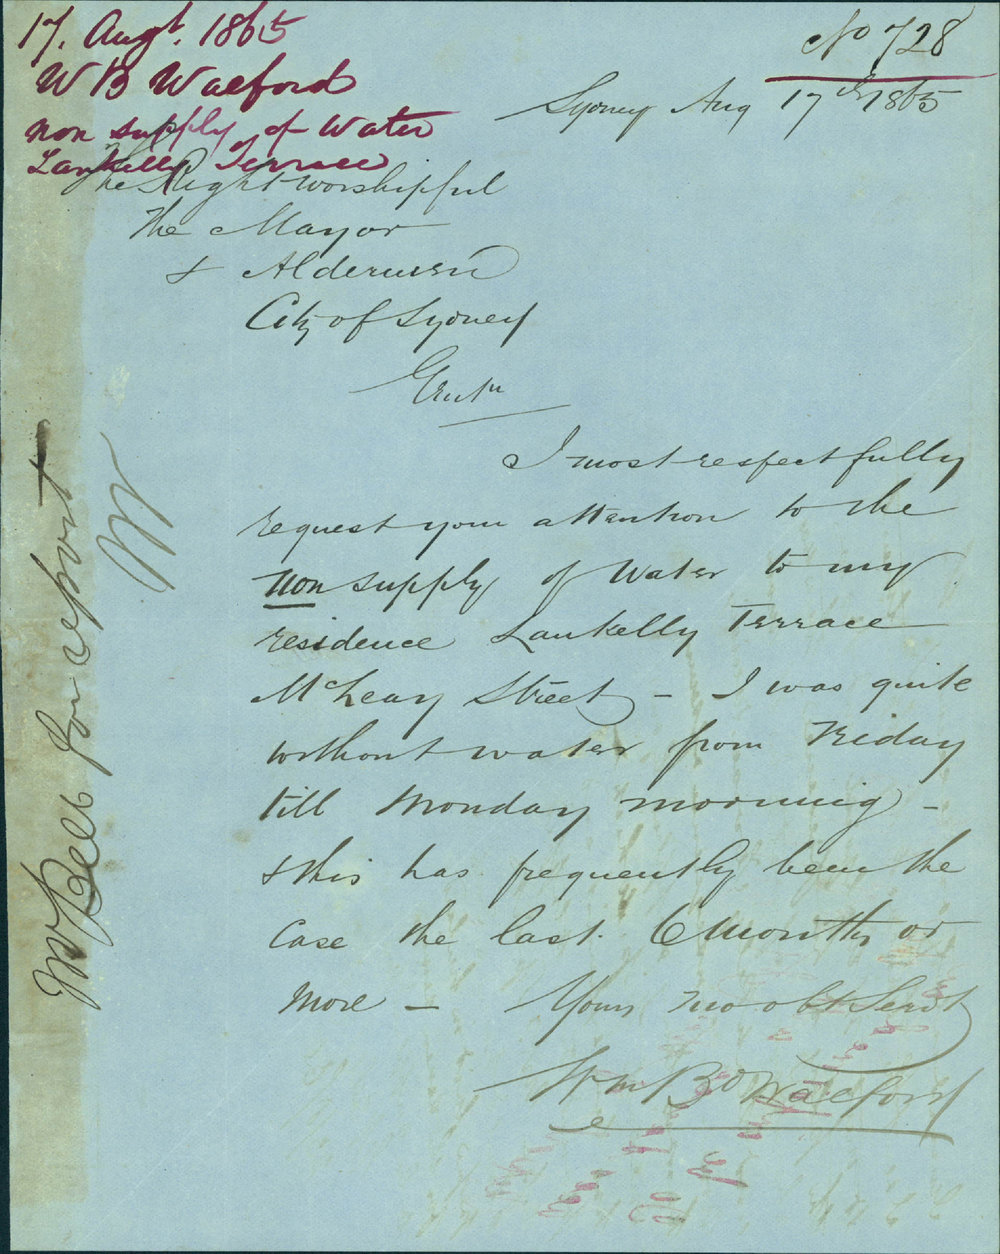 17. Augt. 1865
W B Walford
non supply of Water
Lankelly Terrace
No 728
Sydney Aug 17th 1865
The Right worshipful
The Mayor
& Aldermen
City of Sydney
Gentn
I most respectfully
request your attention to the
non supply of Water to my
residence Lankelly Terrace
McLeay Street - I was quite
without water from Friday
till Monday morning -
& this has frequently been the
case the last 6 months or
more - Yours mo obt Servt
Wm Bd Walford
Mr Bell for report